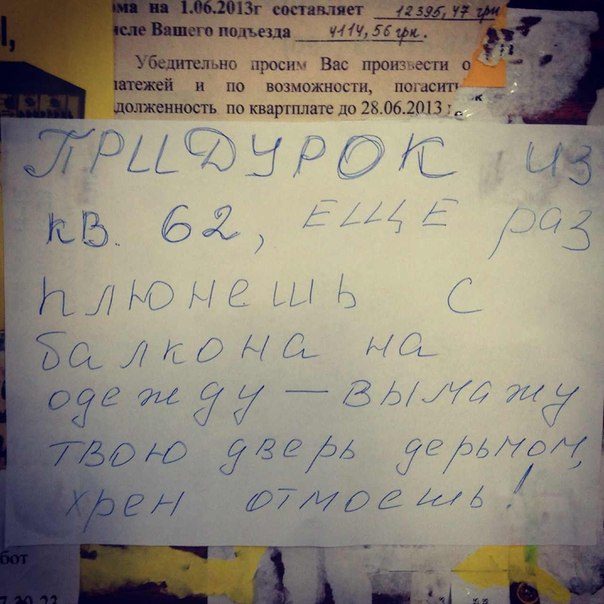 ма на 1.06.2013г составляет 12395,47 грн
исле Вашего подъезда 4114,56 грн.
Убедительно просим Вас произвести о
латежей и по возможности, погасить
долженность по квартплате до 28.06.2013 г.
ПРИДУРОК ИЗ
КВ. 62, ЕЩЕ РАЗ
ПЛЮНЕШЬ С
БАЛКОНА НА
ОДЕЖДУ — ВЫМАЖУ
ТВОЮ ДВЕРЬ ДЕРЬМОМ,
ХРЕН ОТМОЕШЬ!
бот
7-30-23